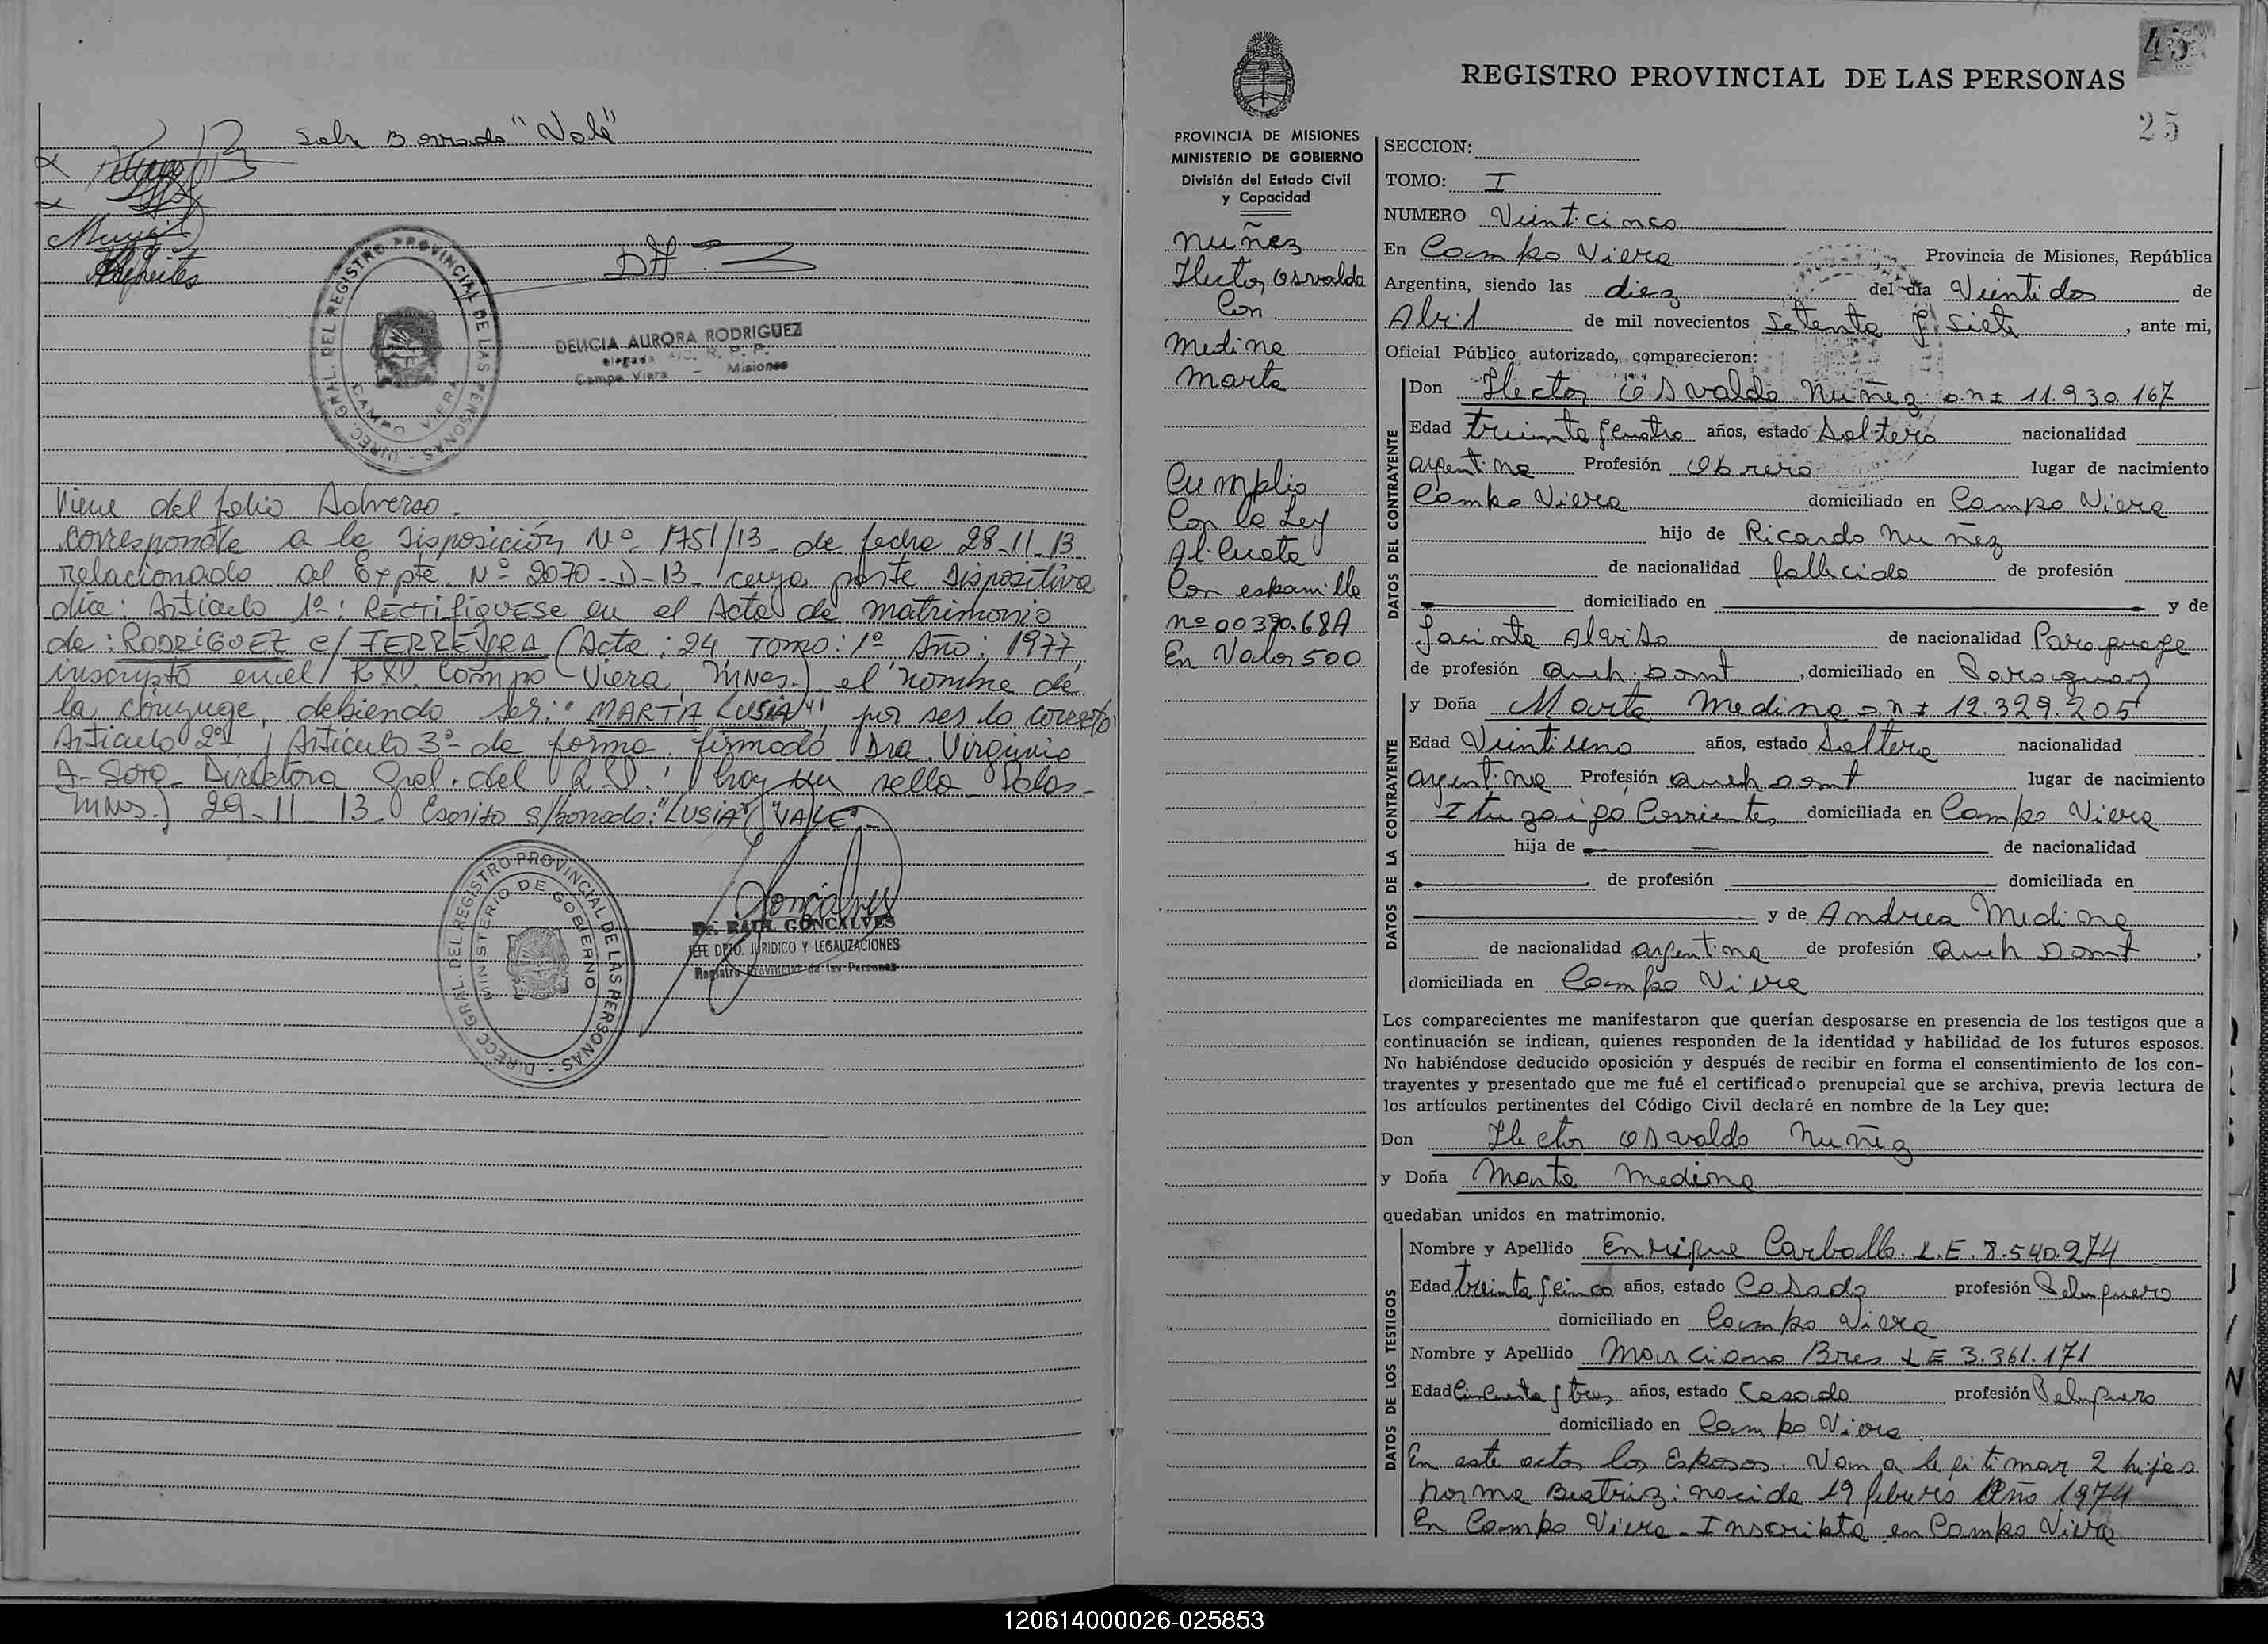 Sobre Borrado "Vale"
DIREC. GRAL. DEL REGISTRO PROVINCIAL DE LAS PERSONAS
CAMPO VIERA
DELICIA AURORA RODRIGUEZ
Campo Viera - Misiones
Viene del folio Adverso.
Corresponde a la Disposición Nº 1751/13 de fecha 28-11-13
relacionado al Expte. Nº 2070-D-13- cuya parte Dispositiva
dice: Artículo 1º: RECTIFIQUESE en el Acta de matrimonio
de: RODRIGUEZ c/ FERREYRA (Acta: 24 Tomo: 1º Año: 1977,
inscripta en el Campo Viera, Mnes.) el nombre de
la cónyuge, debiendo ser: "MARTA LUSIA", por ser lo correcto
Artículo 2º y Artículo 3º de forma. firmado Dra. Virginia
A- Soto- Directora Gral. del R.P. hay un sello- Pdas-
Mnes.) 29-11-13- Escrito s/borrado: "LUSIA" "VALE"-
DIRECC. GRAL. DEL REGISTRO PROVINCIAL DE LAS PERSONAS
MINISTERIO DE GOBIERNO
Dr. RAUL GONCALVES
JEFE DPTO. JURIDICO Y LEGALIZACIONES
Registro Provincial de las Personas
45
REGISTRO PROVINCIAL DE LAS PERSONAS
25
PROVINCIA DE MISIONES
MINISTERIO DE GOBIERNO
División del Estado Civil
y Capacidad
Nuñez
Hector Osvaldo
Con
Medina
Marta
Cumplio
Con la Ley
Al.Cuota
Con estampilla
nº 00390.68A
En Valor 500
SECCION:
TOMO: I
NUMERO Veinticinco
En Campo Viera Provincia de Misiones, República
Argentina, siendo las diez del día Veintidos de
Abril de mil novecientos Setenta y Siete, ante mi,
Oficial Público autorizado, comparecieron:
DATOS DEL CONTRAYENTE
Don Hector Osvaldo Nuñez D.N.I 11.930.167
Edad treinta y cuatro años, estado Soltero nacionalidad
argentina Profesión Obrero lugar de nacimiento
Campo Viera domiciliado en Campo Viera
hijo de Ricardo Nuñez
de nacionalidad fallecido de profesión
domiciliado en y de
Jacinta Alviso de nacionalidad Paraguaya
de profesión Queh.Domt, domiciliado en Paraguay
DATOS DE LA CONTRAYENTE
y Doña Marta Medina D.N.I 12.329.205
Edad Veintiuno años, estado Soltera nacionalidad
argentina Profesión Queh Domt lugar de nacimiento
Ituzaigó Corrientes domiciliada en Campo Viera
hija de de nacionalidad
de profesión domiciliada en
y de Andrea Medina
de nacionalidad argentina de profesión Queh Domt,
domiciliada en Campo Viera
Los comparecientes me manifestaron que querían desposarse en presencia de los testigos que a
continuación se indican, quienes responden de la identidad y habilidad de los futuros esposos.
No habiéndose deducido oposición y después de recibir en forma el consentimiento de los con-
trayentes y presentado que me fué el certificado prenupcial que se archiva, previa lectura de
los artículos pertinentes del Código Civil declaré en nombre de la Ley que:
Don Hector Osvaldo Nuñez
y Doña Marta Medina
quedaban unidos en matrimonio.
DATOS DE LOS TESTIGOS
Nombre y Apellido Enrique Carballo. L.E. 8.540.274
Edad treinta y cinco años, estado Casado profesión Peluquero
domiciliado en Campo Viera
Nombre y Apellido Marciano Bres L E 3.361.171
Edad Cincuenta y tres años, estado Casado profesión Peluquero
domiciliado en Campo Viera
En este acto los Esposos. Van a legitimar 2 hijas
Norma Beatriz: nacida 19 febrero Año 1974
En Campo Viera- Inscripta en Campo Viera
120614000026-025853